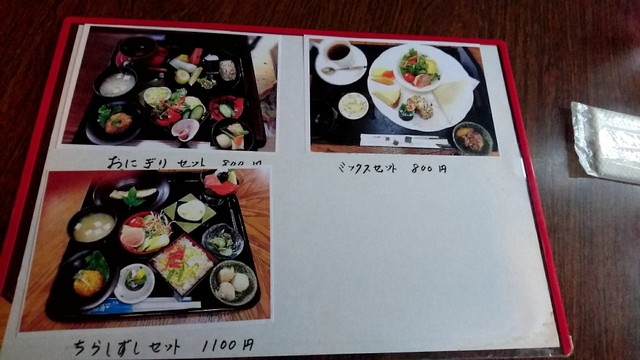 おにぎり セット 800円
ミックスセット 800円
ちらしずし セット 1100円